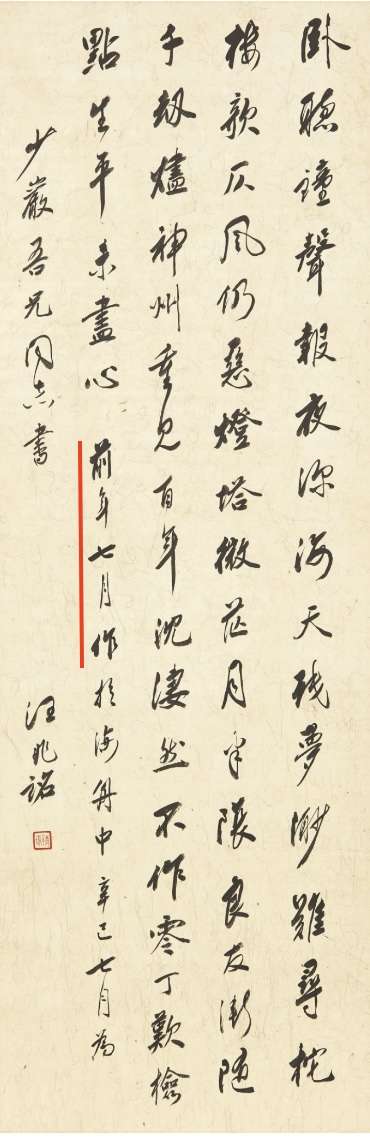 臥聽鐘聲報夜深海天殘夢渺難尋柁
樓欹仄風仍惡燈塔微茫月半陰良友漸隨
千劫燼神州重見百年沈淒然不作零丁歎檢
點生平未盡心 前年七月作於海舟中辛巳七月為
少巖吾兄同志書 汪兆銘